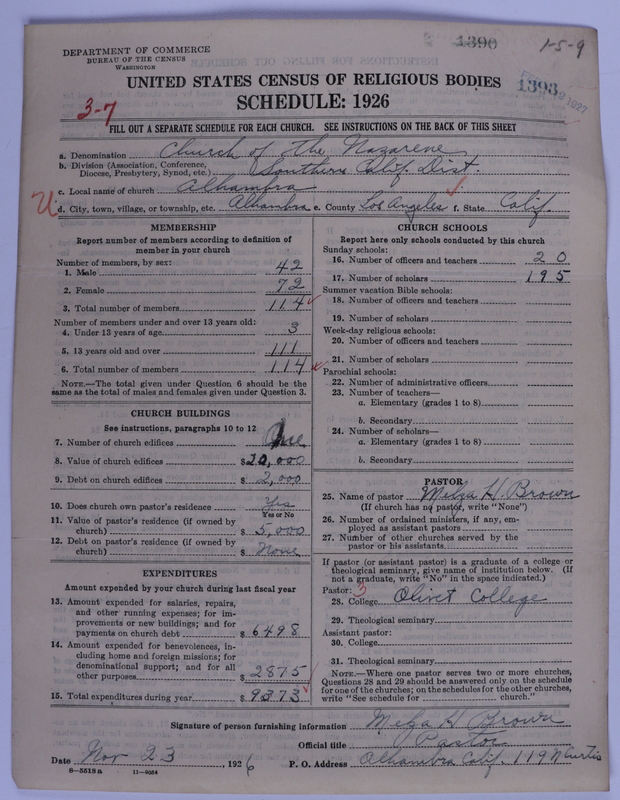 1390
1-5-9
DEPARTMENT OF COMMERCE
BUREAU OF THE CENSUS
WASHINGTON
UNITED STATES CENSUS OF RELIGIOUS BODIES
1393
3-7
SCHEDULE: 1926
FILL OUT A SEPARATE SCHEDULE FOR EACH CHURCH. SEE INSTRUCTIONS ON THE BACK OF THIS SHEET
a. Denomination Church of the Nazarene
b. Division (Association, Conference, Diocese, Presbytery, Synod, etc.) Southern Calif. Dist.
c. Local name of church Alhambra
U d. City, town, village, or township, etc. Alhambra e. County Los Angeles f. State Calif.
MEMBERSHIP
Report number of members according to definition of
member in your church
Number of members, by sex:
1. Male 42
2. Female 72
3. Total number of members 114
Number of members under and over 13 years old:
4. Under 13 years of age 3
5. 13 years old and over 111
6. Total number of members 114
NOTE.—The total given under Question 6 should be the
same as the total of males and females given under Question 3.
CHURCH BUILDINGS
See instructions, paragraphs 10 to 12
7. Number of church edifices One
8. Value of church edifices $20,000
9. Debt on church edifices $2,000
10. Does church own pastor's residence Yes
Yes or No
11. Value of pastor's residence (if owned by
church) $5,000
12. Debt on pastor's residence (if owned by
church) $None
EXPENDITURES
Amount expended by your church during last fiscal year
13. Amount expended for salaries, repairs,
and other running expenses; for im-
provements or new buildings; and for
payments on church debt $6498
14. Amount expended for benevolences, in-
cluding home and foreign missions; for
denominational support; and for all
other purposes $2875
15. Total expenditures during year $9373
CHURCH SCHOOLS
Report here only schools conducted by this church
Sunday schools:
16. Number of officers and teachers 20
17. Number of scholars 195
Summer vacation Bible schools:
18. Number of officers and teachers
19. Number of scholars
Week-day religious schools:
20. Number of officers and teachers
21. Number of scholars
Parochial schools:
22. Number of administrative officers
23. Number of teachers—
a. Elementary (grades 1 to 8)
b. Secondary
24. Number of scholars—
a. Elementary (grades 1 to 8)
b. Secondary
PASTOR
25. Name of pastor Melza H. Brown
(If church has no pastor, write "None")
26. Number of ordained ministers, if any, em-
ployed as assistant pastors
27. Number of other churches served by the
pastor or his assistants
If pastor (or assistant pastor) is a graduate of a college or
theological seminary, give name of institution below. (If
not a graduate, write "No" in the space indicated.)
Pastor: 3
28. College Olivet College
29. Theological seminary
Assistant pastor:
30. College
31. Theological seminary
NOTE.—Where one pastor serves two or more churches,
Questions 28 and 29 should be answered only on the schedule
for one of the churches; on the schedules for the other churches,
write "See schedule for church."
Signature of person furnishing information Melza H Brown
Official title Pastor
Date Nov 23, 1926 P. O. Address Alhambra Calif. 119 N Curtis
8—5518a 11—9054